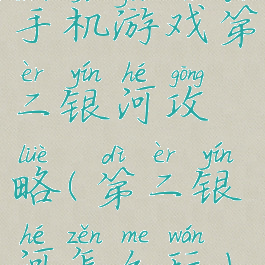 手机游戏第
èr yín hé gōng
二银河攻
lüè dì èr yín
略(第二银
hé zěn me wán
河怎么玩)